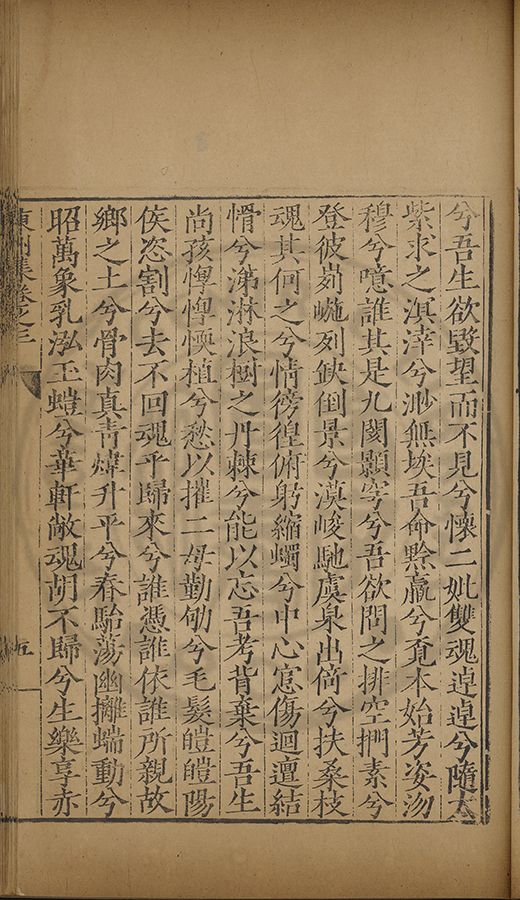 兮吾生欲毀望而不見兮懷二妣雙魂逴逴兮隨太
紫求之溟涬兮渺無埃吾命黔羸兮覔本始芳姿沕
穆兮噫誰其是九閡顥穹兮吾欲問之排空捫素兮
登彼峛崺列缺倒景兮漠峻馳虞泉出倚兮扶桑枝
魂其何之兮情徬徨俯躬縮蠋兮中心悹傷迴邅結
愲兮涕淋浪樹之丹棘兮能以忘吾考背棄兮吾生
尚孩惸惸惸植兮愁以摧二母勤劬兮毛髮皚皚陽
侯恣割兮去不回魂乎歸來兮誰憑誰依誰所親故
鄉之土兮骨肉真青煒升平兮春駘蕩幽擁蠕動兮
昭萬象乳泓玉螘兮華軒敞魂胡不歸兮生樂享赤
東洲集卷之三
五